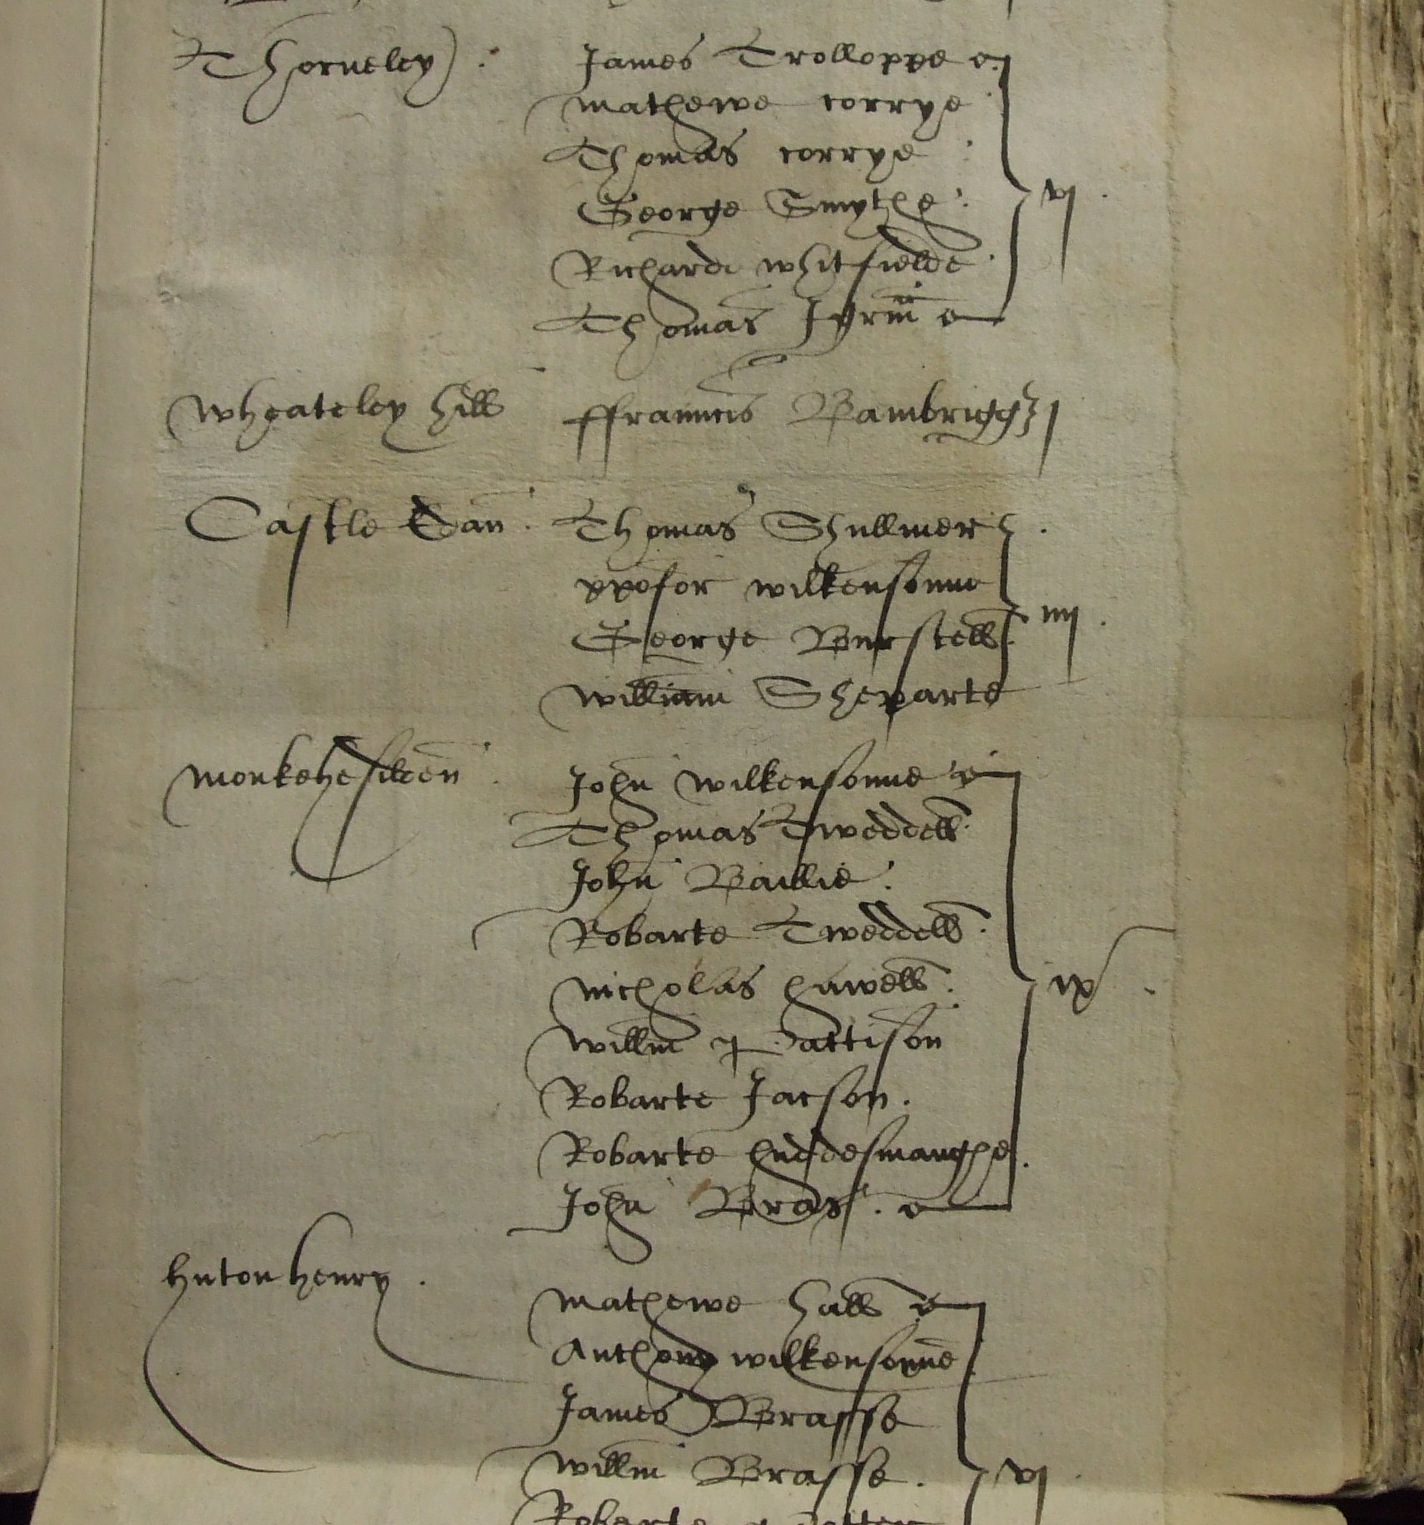 Thorneley James Trolloppe
mathewe corrye
Thomas corrye
George Smythe vj
Richarde whitfielde
Thomas
Wheateley hill ffrauncis Bambrigg j
Castle Ean Thomas Shullmer
wilkensonne
George Burstell iiij
william Sheparte
monkehesilden John wilkensonne
Thomas Tweddell
John Baillie
Robarte Tweddell
nicholas hawell ix
willm Pattison
Robarte Jacson
Robarte huddesmaughe
John Bras
huton henry
mathewe hall
Anthony wilkensonne
James Brasse
willm Brasse vj
Robarte